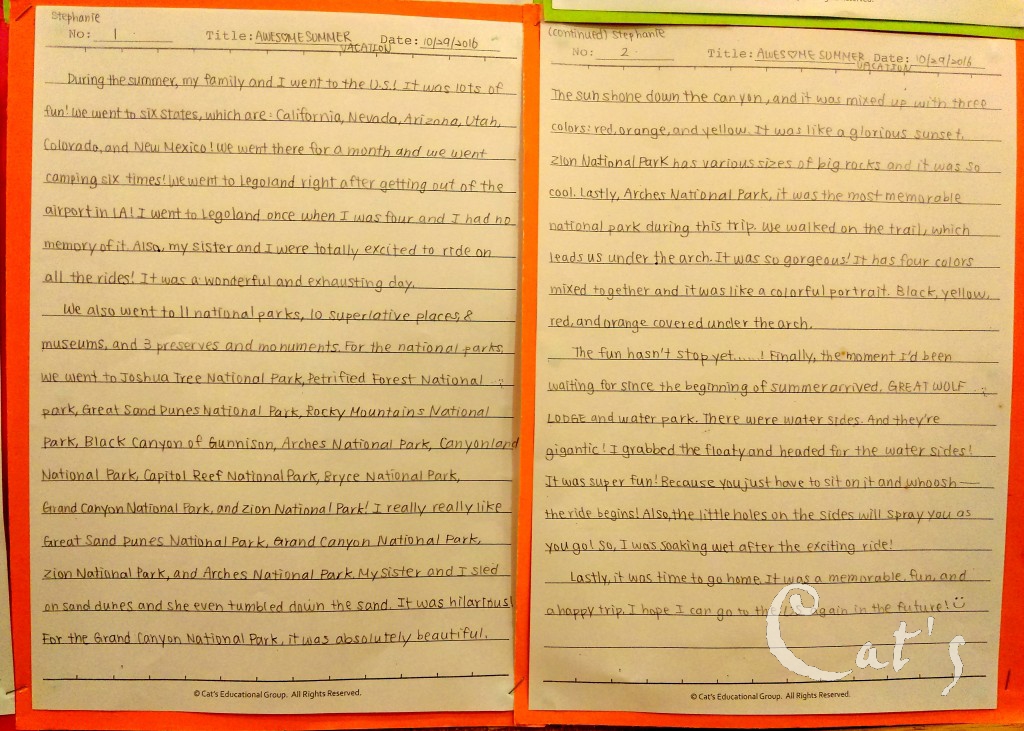 Stephanie
No: 1 Title: AWESOME SUMMER VACATION Date: 10/29/2016
During the summer, my family and I went to the U.S.! It was lots of
fun! We went to six states, which are: California, Nevada, Arizona, Utah,
Colorado, and New Mexico! We went there for a month and we went
camping six times! We went to Legoland right after getting out of the
airport in LA! I went to Legoland once when I was four and I had no
memory of it. Also, my sister and I were totally excited to ride on
all the rides! It was a wonderful and exhausting day.
We also went to 11 national parks, 10 superlative places, 8
museums, and 3 preserves and monuments. For the national parks,
we went to Joshua Tree National Park, Petrified Forest National
park, Great Sand Dunes National Park, Rocky Mountains National
Park, Black Canyon of Gunnison, Arches National Park, Canyonland
National Park, Capitol Reef National Park, Bryce National Park,
Grand Canyon National Park, and Zion National Park! I really really like
Great Sand Dunes National Park, Grand Canyon National Park,
Zion National Park, and Arches National Park. My sister and I sled
on sand dunes and she even tumbled down the sand. It was hilarious!
For the Grand Canyon National Park, it was absolutely beautiful.
© Cat's Educational Group. All Rights Reserved.
(continued) Stephanie
No: 2 Title: AWESOME SUMMER VACATION Date: 10/29/2016
The sun shone down the canyon, and it was mixed up with three
colors: red, orange, and yellow. It was like a glorious sunset.
Zion National Park has various sizes of big rocks and it was so
cool. Lastly, Arches National Park, it was the most memorable
national park during this trip. We walked on the trail, which
leads us under the arch. It was so gorgeous! It has four colors
mixed together and it was like a colorful portrait. Black, yellow,
red, and orange covered under the arch.
The fun hasn't stop yet......! Finally, the moment I'd been
waiting for since the beginning of summer arrived. GREAT WOLF
LODGE and water park. There were water sides. And they're
gigantic! I grabbed the floaty and headed for the water sides!
It was super fun! Because you just have to sit on it and whoosh—
the ride begins! Also, the little holes on the sides will spray you as
you go! So, I was soaking wet after the exciting ride!
Lastly, it was time to go home. It was a memorable, fun, and
a happy trip. I hope I can go to the again in the future!
Cat's
© Cat's Educational Group. All Rights Reserved.